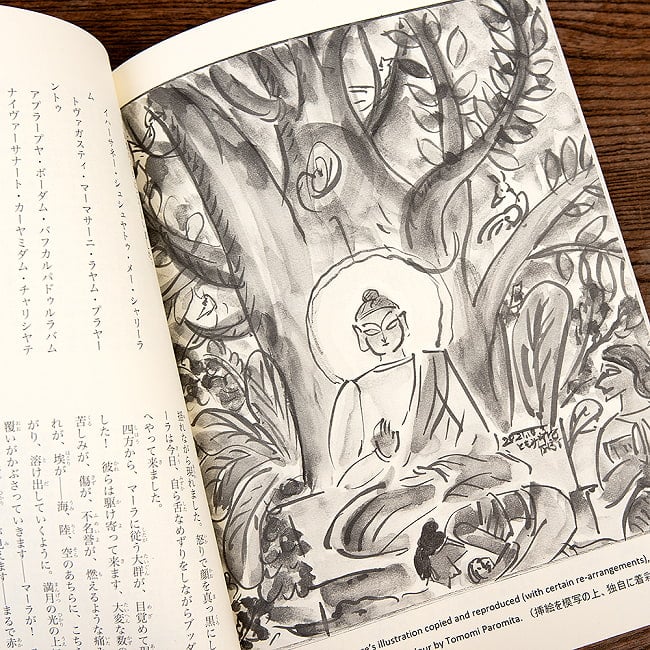 イハーサネー・シュシュヤトゥ・メー・シャリーラ
ム
トヴァガスティ・マーマサーニ・ラヤム・プラヤー
ントゥ
アプラープヤ・ボーダム・バフカルパドゥルラバム
ナイヴァーサナート・カーヤミダム・チャリシャテ
揺れながら現れました、怒りで顔を真っ黒にし
ーラは今日、自ら舌なめずりをしながらブッダ
へやって来ました。
四方から、マーラに従う大群が、目覚めて
した！　彼らは駆け寄って来ます、大変な数の
苦しみが、傷が、不名誉が、燃えるような痛
れが、埃が　海、陸、空のあちらに、こち
がり、溶け出していくように。満月の光の上
覆いがかぶさっていきます――マーラが！
ます――まるで赤
's illustration copied and reproduced (with certain re-arrangements),
our by Tomomi Paromita. （挿絵を模写の上、独自に着彩